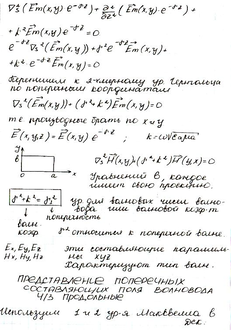 ∇²_S (E⃗m(x,y) e^{-γz}) + ∂²/∂z² (E⃗m(x,y) · e^{-γz}) +
+ k² E⃗m(x,y) e^{-γz} = 0
e^{-γz} ∇²_S (E⃗m(x,y)) + γ² e^{-γz} E⃗m(x,y) +
+ k² e^{-γz} E⃗m(x,y) = 0
Перейдём к 2-мерному ур. Гельмгольца
по поперечным координатам
∇²_S (E⃗m(x,y)) + (γ² + k²) E⃗m(x,y) = 0
т.е производные брать по x и y
E⃗(x,y,z) = E⃗(x,y) e^{-γz} ; k = ω√εaμa
y
b
∇²_S H⃗(x,y) + (γ² + k²) H⃗(x,y) = 0
Уравнений 6, каждое
0 a x
имеет свою проекцию.
ур для волновых чисел волновода или
волн
коэф
γ² относится к попереч
Ex, Ey, Ez
Hx, Hy, Hz
эти составляющие параллельны
xyz
Характеризуют тип волн.
ПРЕДСТАВЛЕНИЕ ПОПЕРЕЧНЫХ
СОСТАВЛЯЮЩИХ ПОЛЯ ВОЛНОВОДА
Ч/З ПРОДОЛЬНЫЕ
Используем 1 и 2 ур-я Максвелла в
дек.